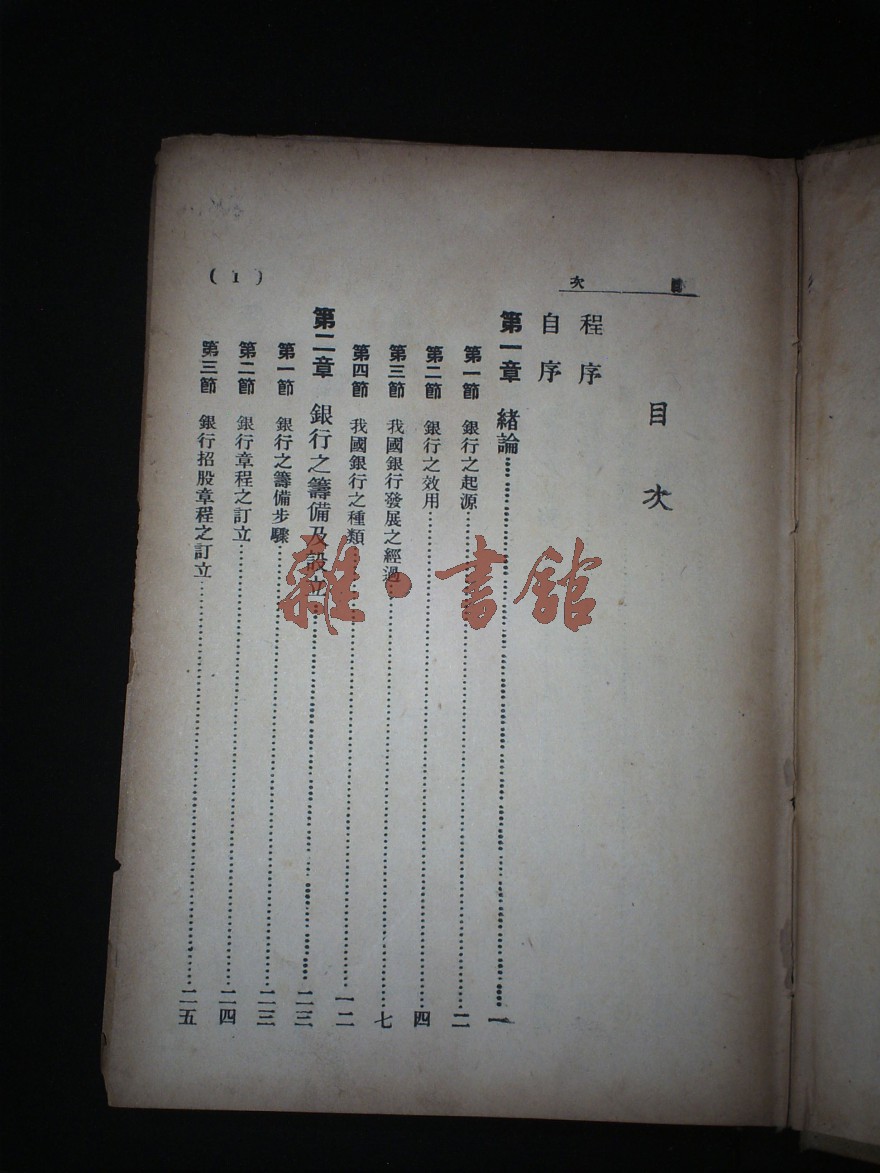 目次
(1)
目次
程序
自序
第一章 緒論……一
第一節 銀行之起源……二
第二節 銀行之效用……四
第三節 我國銀行發展之經過……七
第四節 我國銀行之種類……一二
第二章 銀行之籌備及設立……二三
第一節 銀行之籌備步驟……二三
第二節 銀行章程之訂立……二四
第三節 銀行招股章程之訂立……二五
雜·書館